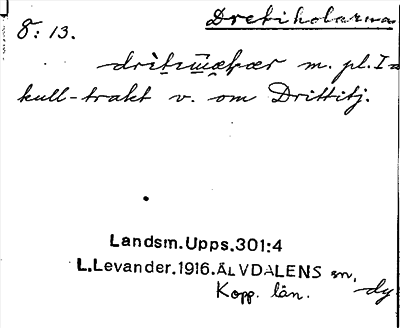 8:13. Dretikolarna
m. pl. I=
kull-trakt v. om Drittitj.
Landsm.Upps.301:4
L.Levander.1916.ÄLVDALENS sn,
Kopp. län. dy